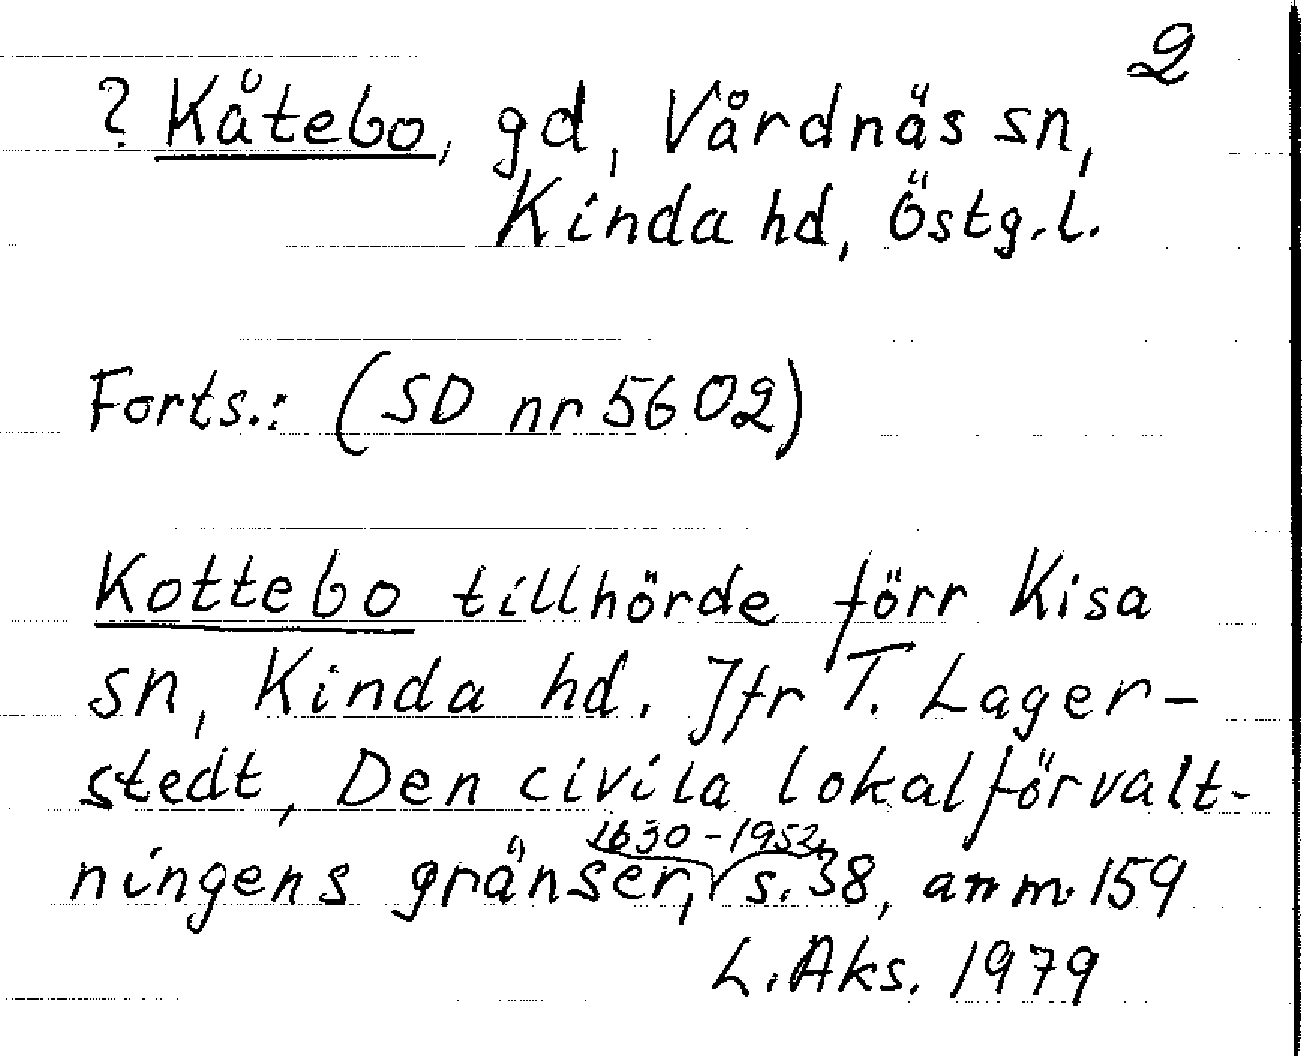 2
? Kåtebo, gd, Vårdnäs sn,
Kinda hd, Östg.l.
Forts.: (SD nr 5602)
Kottebo tillhörde förr Kisa
sn, Kinda hd. Jfr T. Lager-
stedt, Den civila lokalförvalt-
1630-1952,
ningens gränser, s. 38, anm. 159
L. Aks. 1979